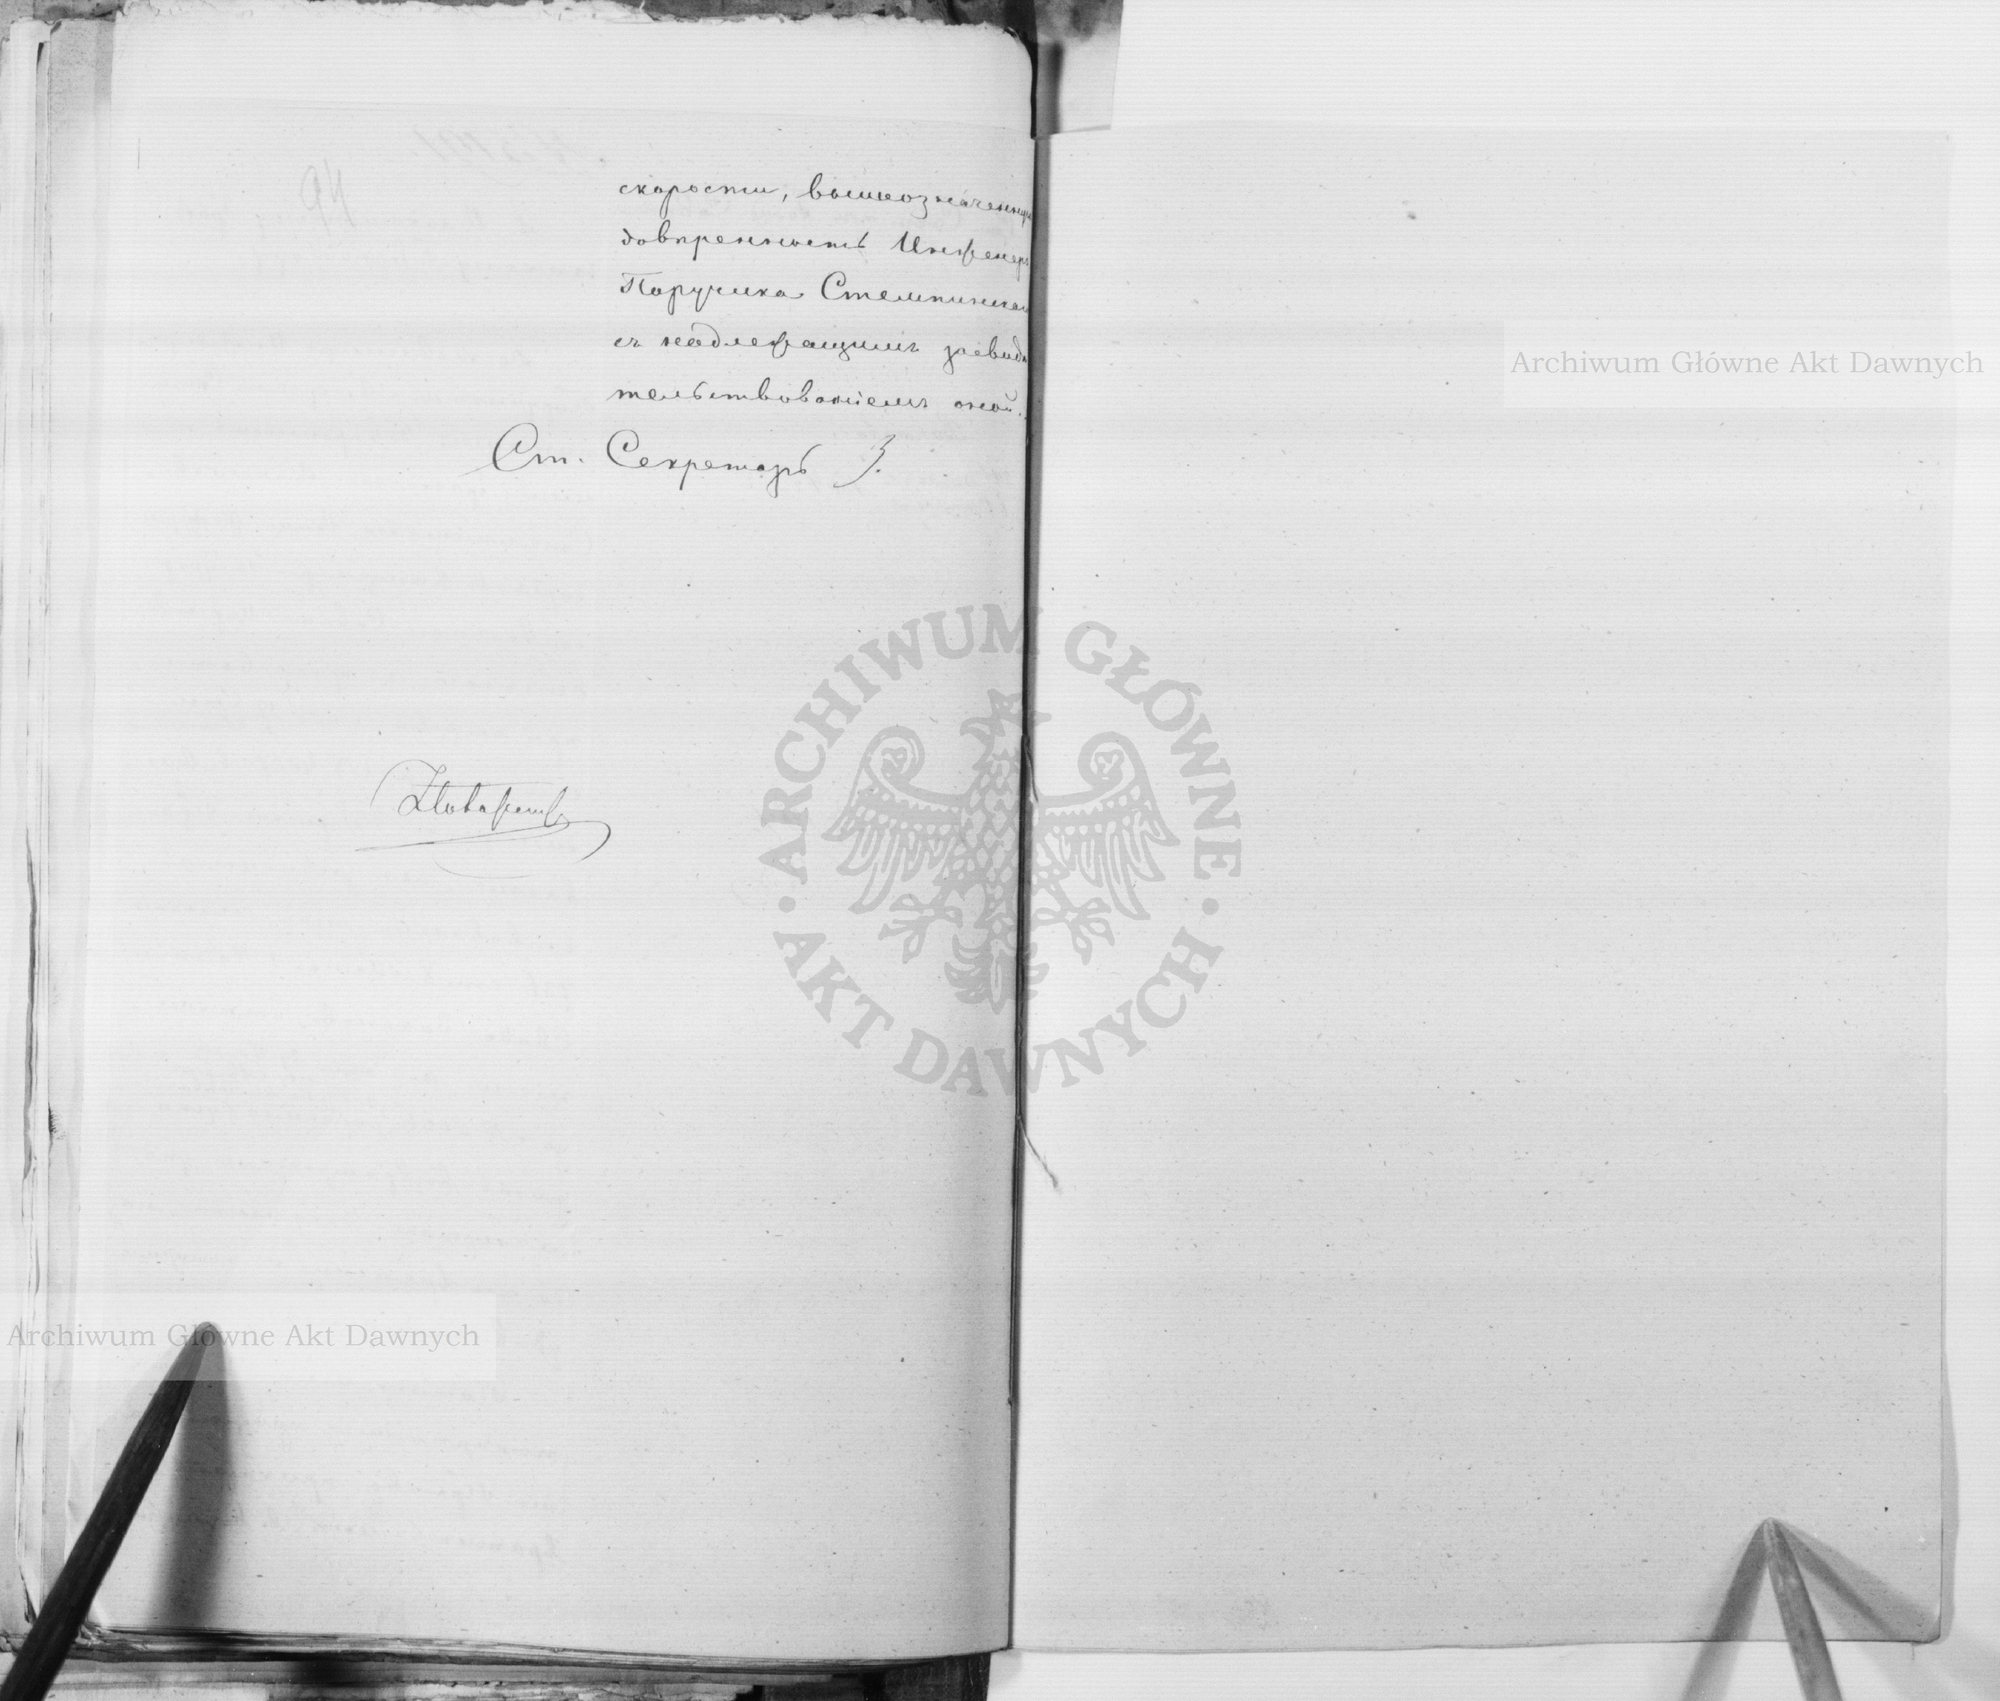 скорости, вышеозначенную
довѣренность Инженеръ
Поручика
съ надлежащимъ засвидѣ
тельствованіемъ оной.
Ст. Секретарь З.
Archiwum Główne Akt Dawnych
ARCHIWUM GŁÓWNE
AKT DAWNYCH
Archiwum Główne Akt Dawnych